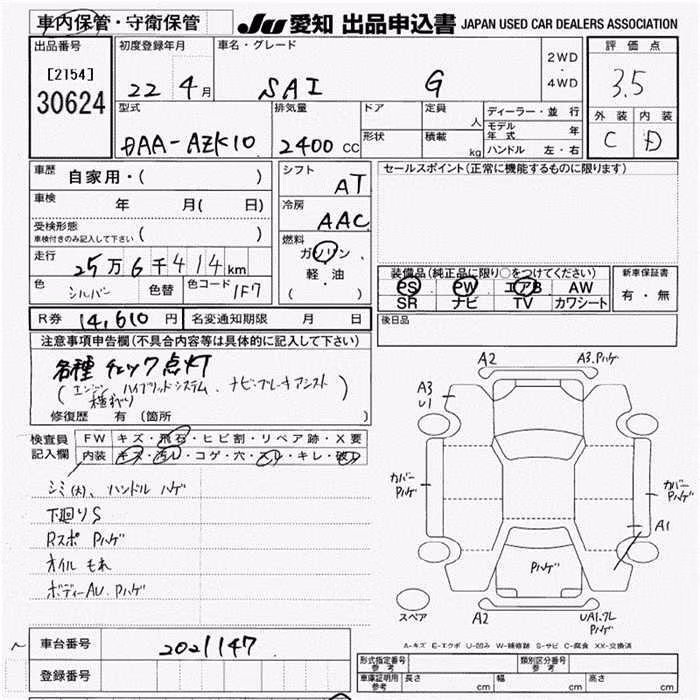 車内保管・守衛保管 JU 愛知 出品申込書 JAPAN USED CAR DEALERS ASSOCIATION
出品番号 初度登録年月 車名・グレード 評価点
[2154] 22 4月 SAI G 2WD・4WD 3.5
30624
型式 排気量 ドア 定員 人 ディーラー・並行 外装 内装
DAA-AZK10 2400 cc 形状 積載 kg モデル年式 年 C D
ハンドル 左・右
車歴 自家用・( ) シフト AT セールスポイント(正常に機能するものに限ります)
車検 年 月( 日) 冷房 AAC
受検形態 ( )
車検付きのみ記入して下さい
燃料 ガソリン、軽・油 ( )
走行 25万6千414km
色 シルバー 色替 色コード 1F7
装備品(純正品に限り○をつけてください) 新車保証書
PS PW エアB AW 有・無
SR ナビ TV カワシート
R券 14,610円 名変通知期限 月 日 後日品
注意事項申告欄(不具合内容等は具体的に記入して下さい)
各種 チェック点灯
(エンジン ハイブリッドシステム、ナビ、ブレーキアシスト)
修復歴 有 (箇所 )
検査員記入欄 FW キズ・飛石・ヒビ割・リペア跡・X要
内装 キズ・汚レ・コゲ・穴・スレ・キレ・破レ
シミ(大)、ハンドル ハゲ
下廻りS
Rスポ Pハゲ
オイル もれ
ボディーAU.Pハゲ
A2 A3.Pハゲ
A3
U1
カバー
Pハゲ
カバー
Pハゲ
A1
Pハゲ
スペア A2 UA1.フレ
Pハゲ
A-キズ E-エクボ U-凹み W-補修跡 S-サビ C-腐食 XX-交換済
車台番号 2021147
登録番号
形式指定番号 参考 類別区分番号 参考
車庫証明用 参考 長さ cm 幅 cm 高さ cm